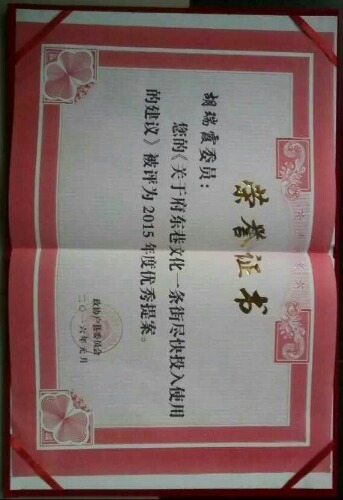 荣誉证书
胡瑞霞委员：
您的《关于府东巷文化一条街尽快投入使用
的建议》被评为2015年度优秀提案。
政协户县委员会
二〇一六年元月